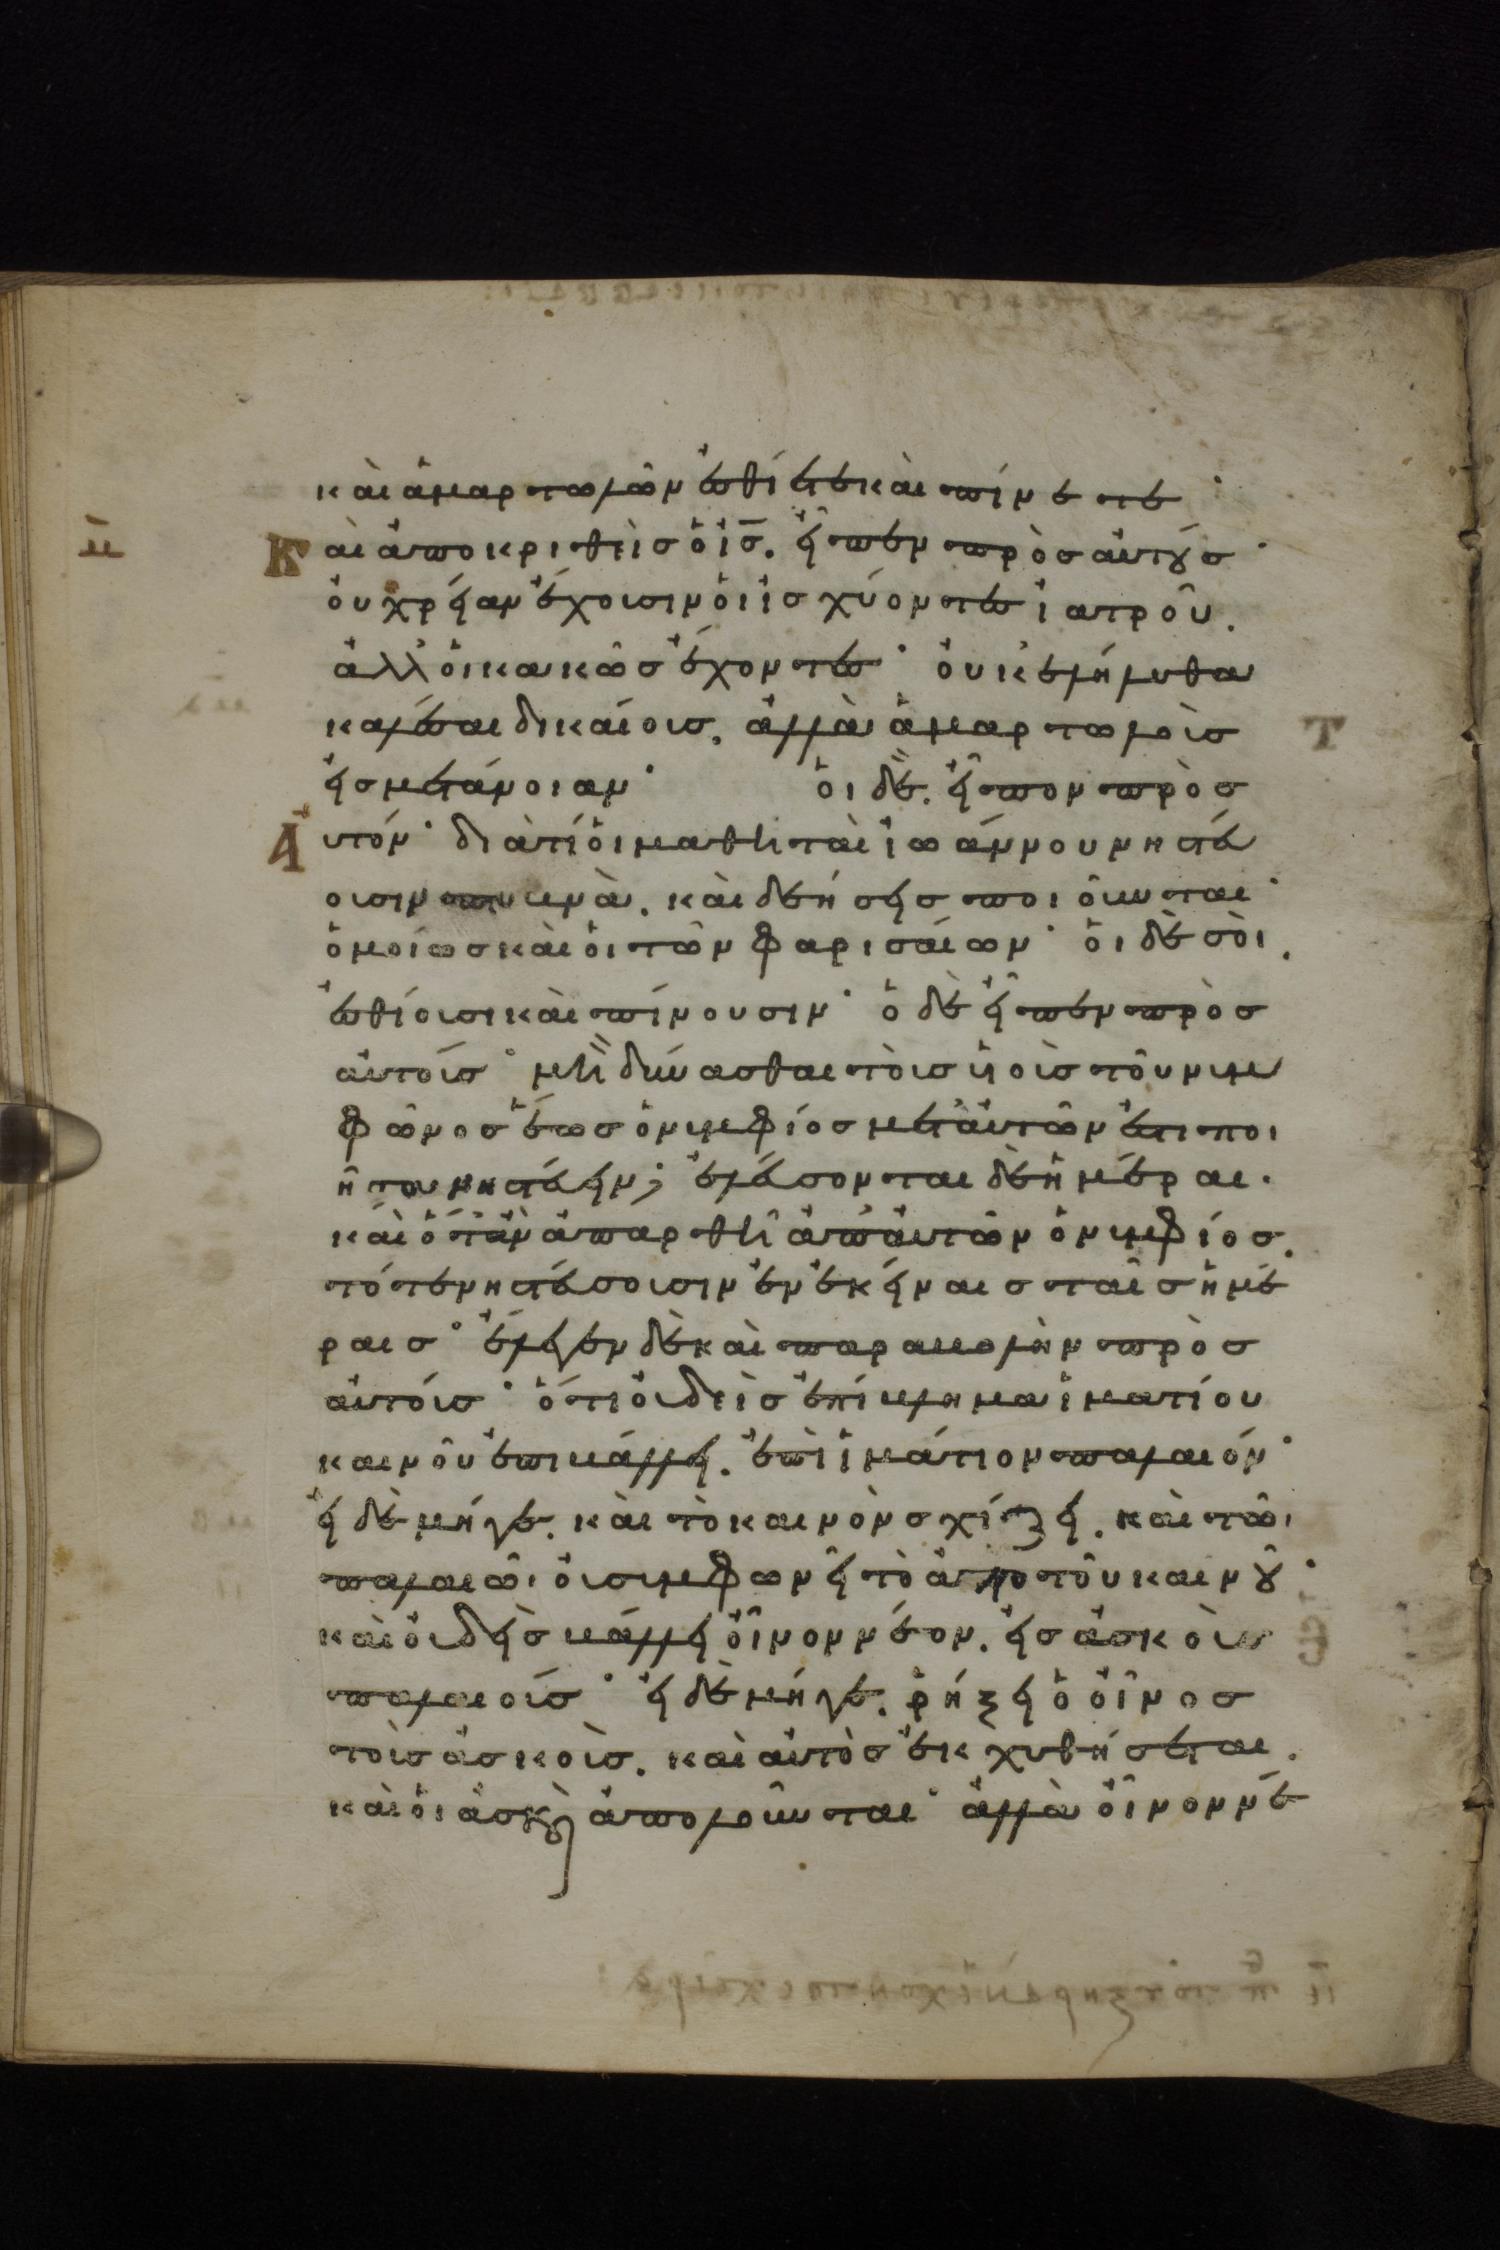 καὶ ἁμαρτωλῶν ἐσθίετε καὶ πίνετε·
Καὶ ἀποκριθεὶς ὁ ι̅ς̅. εἶπεν πρὸς αὐτούς·
οὐ χρείαν ἔχουσιν οἱ ἰσχύοντες ἰατροῦ.
ἀλλ' οἱ κακῶς ἔχοντες· οὐκ ἐλήλυθα
καλέσαι δικαίους. ἀλλὰ ἁμαρτωλοὺς
εἰς μετάνοιαν· οἱ δὲ. εἶπον πρὸς
Ἀυτόν· διὰ τί οἱ μαθηταὶ ἰωάννου νηστέυ
ουσιν πυκνὰ. καὶ δεήσεις ποιοῦνται·
ὁμοίως καὶ οἱ τῶν φαρισαίων· οἱ δὲ σοὶ.
ἐσθίουσι καὶ πίνουσιν· ὁ δὲ εἶπεν πρὸς
αὐτούς· μὴ δύνασθαι τοὺς υἱοὺς τοῦ νυμ
φῶνος ἕως ὁ νυμφίος μετ' αὐτῶν ἐστι ποι
ῆσαι νηστέυειν; ἐλέυσονται δὲ ἡμέραι.
καὶ ὅταν ἀπαρθῆ ἀπ' αὐτῶν ὁ νυμφίος.
τότε νηστέυσουσιν ἐν ἐκείναις ταῖς ἡμέ
ραις· ἔλεγεν δὲ καὶ παραβολὴν πρὸς
αὐτούς· ὅτι οὐδεὶς ἐπίβλημα ἱματίου
καινοῦ ἐπιβάλλει. ἐπὶ ἱμάτιον παλαιόν·
εἰ δὲ μήγε. καὶ τὸ καινὸν σχίζει. καὶ τῶι
παλαιῶι οὐ συμφωνεῖ τὸ ἀπὸ τοῦ καινοῦ·
καὶ οὐδεὶς βάλλει οἶνον νέον. εἰς ἀσκοὺς
παλαιούς· εἰ δὲ μήγε. ῥήξει ὁ οἶνος
τοὺς ἀσκοὺς. καὶ αὐτὸς ἐκχυθήσεται.
καὶ οἱ ἀσκοὶ ἀπολοῦνται· ἀλλὰ οἶνον νέ